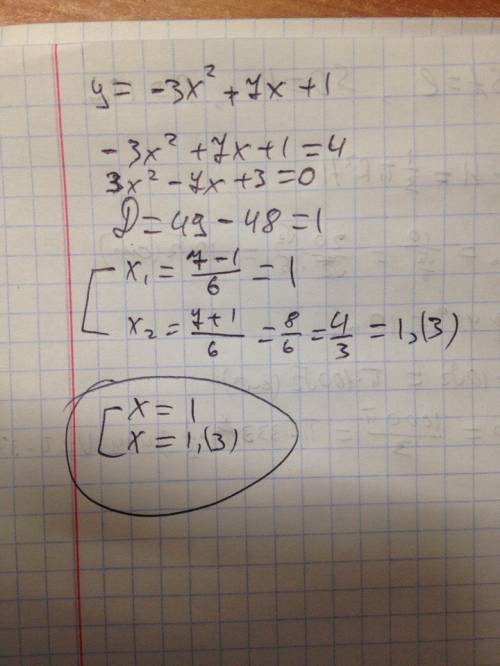 y = -3x² + 7x + 1
-3x² + 7x + 1 = 4
3x² - 7x + 3 = 0
D = 49 - 48 = 1
x₁ = (7-1)/6 = 1
x₂ = (7+1)/6 = 8/6 = 4/3 = 1,(3)
x = 1
x = 1,(3)